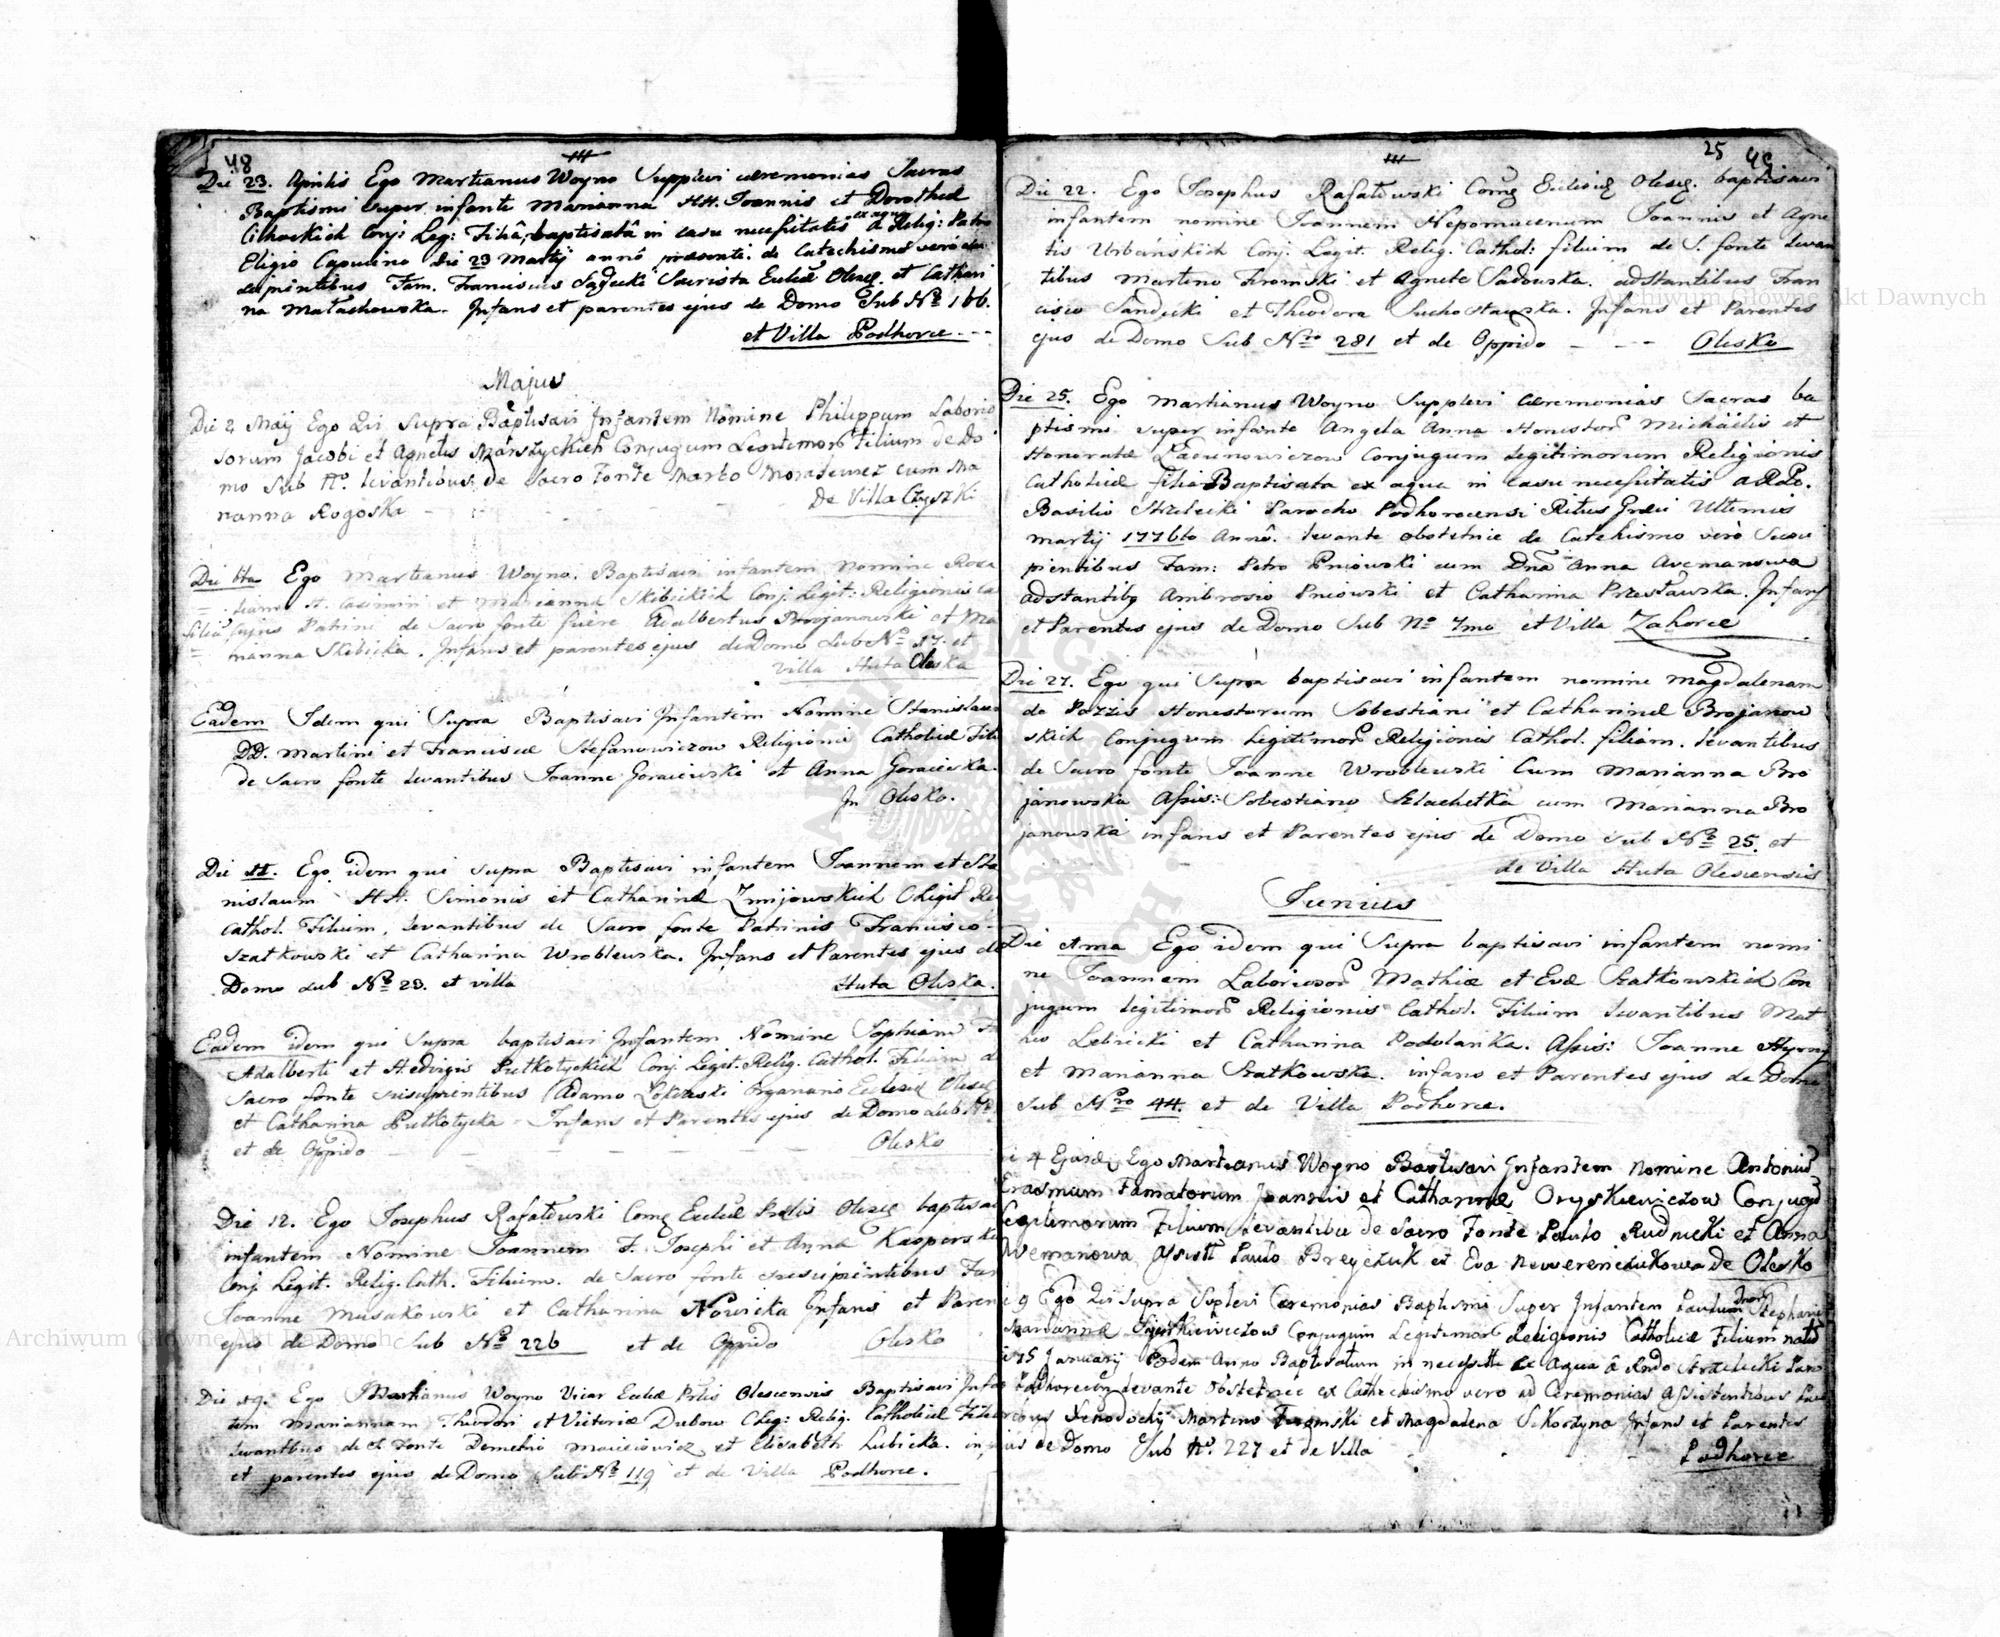 48
Die 23. Aprilis Ego Martianus Woyno Supplevi ceremonias Sacras
Baptismi super infante Marianna HH. Joannis et Dorotheæ
Conj: Leg: Filiâ, baptisatâ in casu necessitatis ex aqua à Relig: Patre
Eligio Capucino die 23 Martij annô præsenti. de Catechismo verò
Fam. Francisus Sadecki Sacrista Eccliæ Olesc. et Cathari
na Małachowska. Infans et parentes ejus de Domo Sub Nº 166.
et Villa Podhorce
Majus
Die 2 Maij Ego Qui Supra Baptisavi Infantem Nomine Philippum Laborio
sorum Jacobi et Agnetis Conjugum Legitimor Filium de Do
mo Sub Nº. levantibus de Sacro Fonte Marko cum Ma
rianna Rogoska - De Villa
Die 6ta Ego Martianus Woyno. Baptisavi infantem nomine Rosa
H. Casimiri et Mariannæ Skibickich Conj. Legit: Religionis Ca
Filiã Cujus Patrini de Sacro fonte fuere Adalbertus Brojanowski et Ma
rianna Skibicka. Infans et parentes ejus de Domo Sub Nº 17. et
villa Huta Oleska
Eadem Idem qui Supra Baptisavi Infantem Nomine Stanislaum
DD. Martini et Franciscæ Stefanowiczow Religionis Catholicæ Fili
de Sacro fonte levantibus Joanne Goraiewski et Anna Goraiewska.
In Olesko.
Die 11. Ego idem qui supra Baptisavi infantem Joannem et Sta
nislaum HH. Simonis et Catharinæ Zmijowskich CLegit Re
Cathol. Filium, levantibus de Sacro fonte Patrinis Francisco
Szatkowski et Catharina Wroblewska. Infans et Parentes ejus de
Domo sub Nº 23. et villa Huta Oleska.
Eadem idem qui Supra baptisavi Infantem Nomine Sophiam
Adalberti et Hedvigis Putkotyckich Conj. Legit. Relig. Cathol. Filiam de
Sacro fonte suscipientibus Adamo Organario Ecclesiæ Olesc
et Catharina Putkotycka - Infans et Parentes ejus de Domo Sub Nº
et de Oppido Olesko
Die 12. Ego Josephus Rafałowski Ecclæ Olesc baptisavi
infantem Nomine Joannem F. Josephi et Anna Kasperski
Conj. Legit. Relig. Cath. Filium. de Sacro fonte suscipientibus Fam
Joanne Musakowski et Catharina Nowicka Infans et Paren
ejus de Domo Sub Nº 226 et de Oppido Olesko
Die 19. Ego Martianus Woyno Vicar Eccliæ Olescensis Baptisavi Infan
tem Mariannam Theodori et Victoriæ Dubow CLeg: Relig. Catholicæ Filia
levantibus de St Fonte Demetrio et Elisabeth Lubicka. in
et parentes ejus de Domo Sub Nº 119 et de Villa Podhorce.
25 49
Die 22. Ego Josephus Rafałowski Ecclesiæ Olesc. baptisavi
infantem nomine Joannem Nepomucenum Joannis et Agne
tis Urbańskich Conj. Legit. Relig. Cathol: filium de S. fonte levan
tibus Martino et Agnete Sadowska. adstantibus Fran
cisco Sandecki et Theodora Suchostawska. Infans et Parentes
ejus de Domo Sub Nro 281 et de Oppido - - - Olesko
Die 25. Ego Martianus Woyno Supplevi Ceremonias Sacras ba
ptismi super infante Angela Anna Honestor Michäelis et
Honoratæ Conjugum Legitimorum Religionis
Catholicæ filia Baptisata ex aqua in casu necessitatis a RP.
Basilio Strzelecki Parocho Podhorcensi Ritus Græci Ultimis
martij 1776to Annô. levante obstetrice de Catehismo verò Susci
pientibus Fam: Petro Pniowski cum Dna Anna Avemanowa
adstantibq Ambrosio Pniowski et Catharina Przestawska. Infans
et Parentes ejus de Domo Sub Nº 7mo et Villa Zahorce
Die 27. Ego qui Supra baptisavi infantem nomine Magdalenam
de Pazzis Honestorum Sebestiani et Catharinæ Brojanow
skich Conjugum Legitimor Religionis Cathol. filiam. Levantibus
de Sacro fonte Joanne Wroblewski Cum Marianna Bro
janowska Assis: Sebestiano Szlachetka cum Marianna Bro
janowski infans et Parentes ejus de Domo Sub Nº 25. et
de Villa Huta Olescensis
Junius
Die Ego idem qui Supra baptisavi infantem nomi
ne Joannem Laboriosor Mathiæ et Evæ Szatkowskich Con
jugum Legitimor Religionis Cathol. Filium levantibus Mat
heo et Catharina Podolanka. Assis: Joanne
et Marianna Szatkowska. infans et Parentes ejus de Domo
Sub Nro 44. et de Villa Podhorce.
4 Ego Martianus Woyno Baptisavi Infantem Nomine Antoniũ
Erasmum Famatorum Joannis et Catharinæ Oryskiewiczow Conjugũ
Legitimorum Filium levantibu de Sacro Fonte Paulo Rudnicki et Anna
Avemanowa Assistt Paulo et Eva de Olesko
9 Ego Qui Supra Suplevi Ceremonias Baptismi Super Infantem Paulum Stephani
Mariannæ Conjugum Legitimor Religionis Catholicæ Filium natũ
15 January Eodem Anno Baptisatum in necessitte ex Aqua â Rndo Strzelecki Paro
Podhorecen levante Obstetrice ex Cathechismo vero ad Ceremonias Assistentibus
Martino et Magdalena Sikorzyna Infans et Parentes
ejus de Domo Sub Nº. 227 et de Villa
Podhorce
Archiwum Główne Akt Dawnych
Archiwum Główne Akt Dawnych